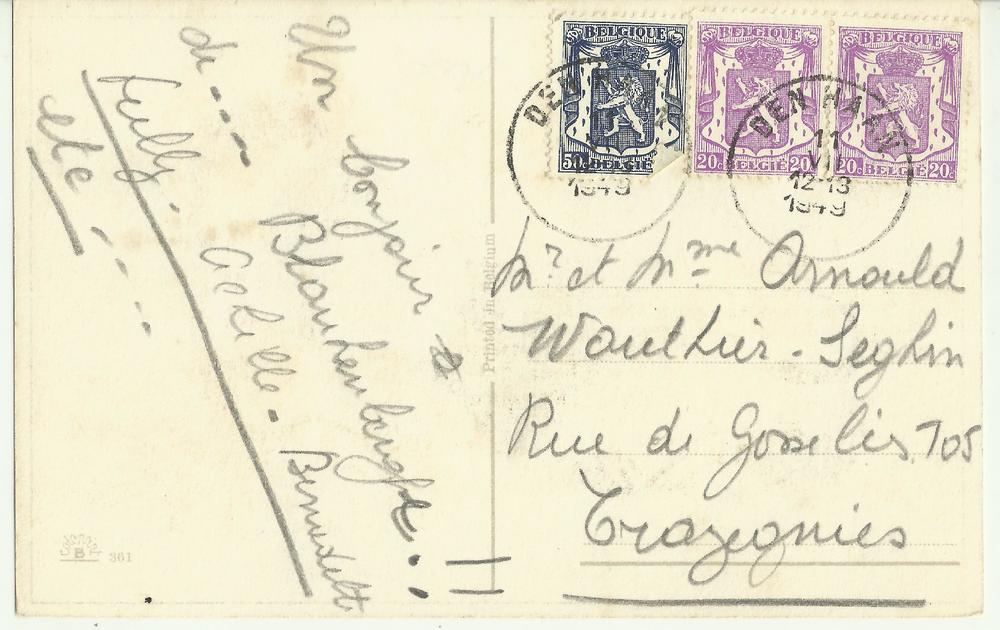 Un bonjour
Blankenberghe
de
Achille. Benedekt
Lully.
etc
BELGIQUE
50c BELGIE
BELGIQUE
20c BELGIË 20c
BELGIQUE
20c BELGIË 20c
DEN HAAN
1949
DEN HAAN
11
VII
12-13
1949
Printed in Belgium
Mr et Mme Arnould
Wauthier - Seghin
Rue de Gosselies 705
Trazegnies
B
361